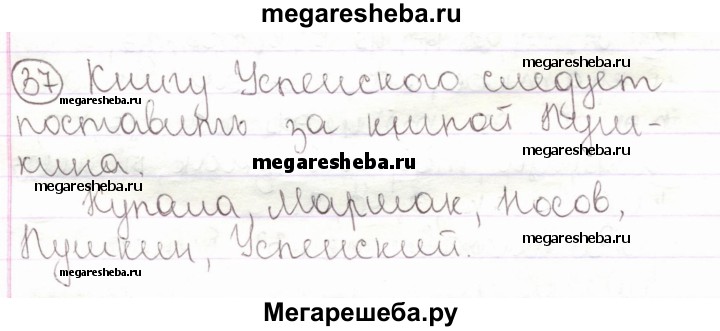 megaresheba.ru
37 Книгу Успенского следует
megaresheba.ru
megaresheba.ru
поставить за книгой Пуш-
megaresheba.ru
кина.
megaresheba.ru
Купала, Маршак, Носов,
Пушкин, Успенский.
megaresheba.ru
Мегарешеба.ру